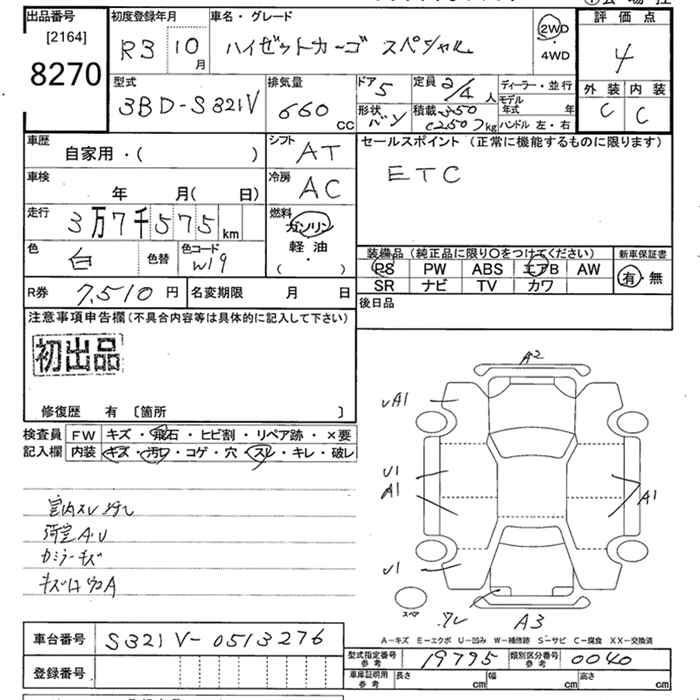 出品番号
[2164]
8270
初度登録年月
R3 10月
車名・グレード
ハイゼットカーゴ スペシャル
2WD
・
4WD
評価点
4
外装 内装
C C
型式
3BD-S321V
排気量
660 CC
ドア 5
形状 バン
定員 2/4 人
積載 350
(250)kg
ディーラー・並行
モデル年式 年
ハンドル 左・右
車歴
自家用・( )
シフト AT
セールスポイント(正常に機能するものに限ります)
ETC
車検
年 月( 日)
冷房 AC
走行
3万7千575km
燃料
ガソリン
軽油
・
( )
色 白 色替 色コード W19
装備品(純正品に限り○をつけてください)
PS PW ABS エアB AW
SR ナビ TV カワ
新車保証書
有・無
R券 7,510円 名変期限 月 日
後日品
注意事項申告欄(不具合内容等は具体的に記入して下さい)
初出品
修復歴 有 〔箇所 〕
検査員 FW キズ・飛石・ヒビ割・リペア跡・×要
記入欄 内装 キズ・汚レ・コゲ・穴・スレ・キレ・破レ
室内スレ汚レ
荷室A.U
カミラーキズ
A2
UA1
U1
A1
A1
U1
スペア
A3
A−キズ E−エクボ U−凹み W−補修跡 S−サビ C−腐食 XX−交換済
車台番号 S321V-0513276
登録番号
型式指定番号 参考 19795 類別区分番号 参考 0040
車庫証明用 参考 長さ cm 幅 cm 高さ cm